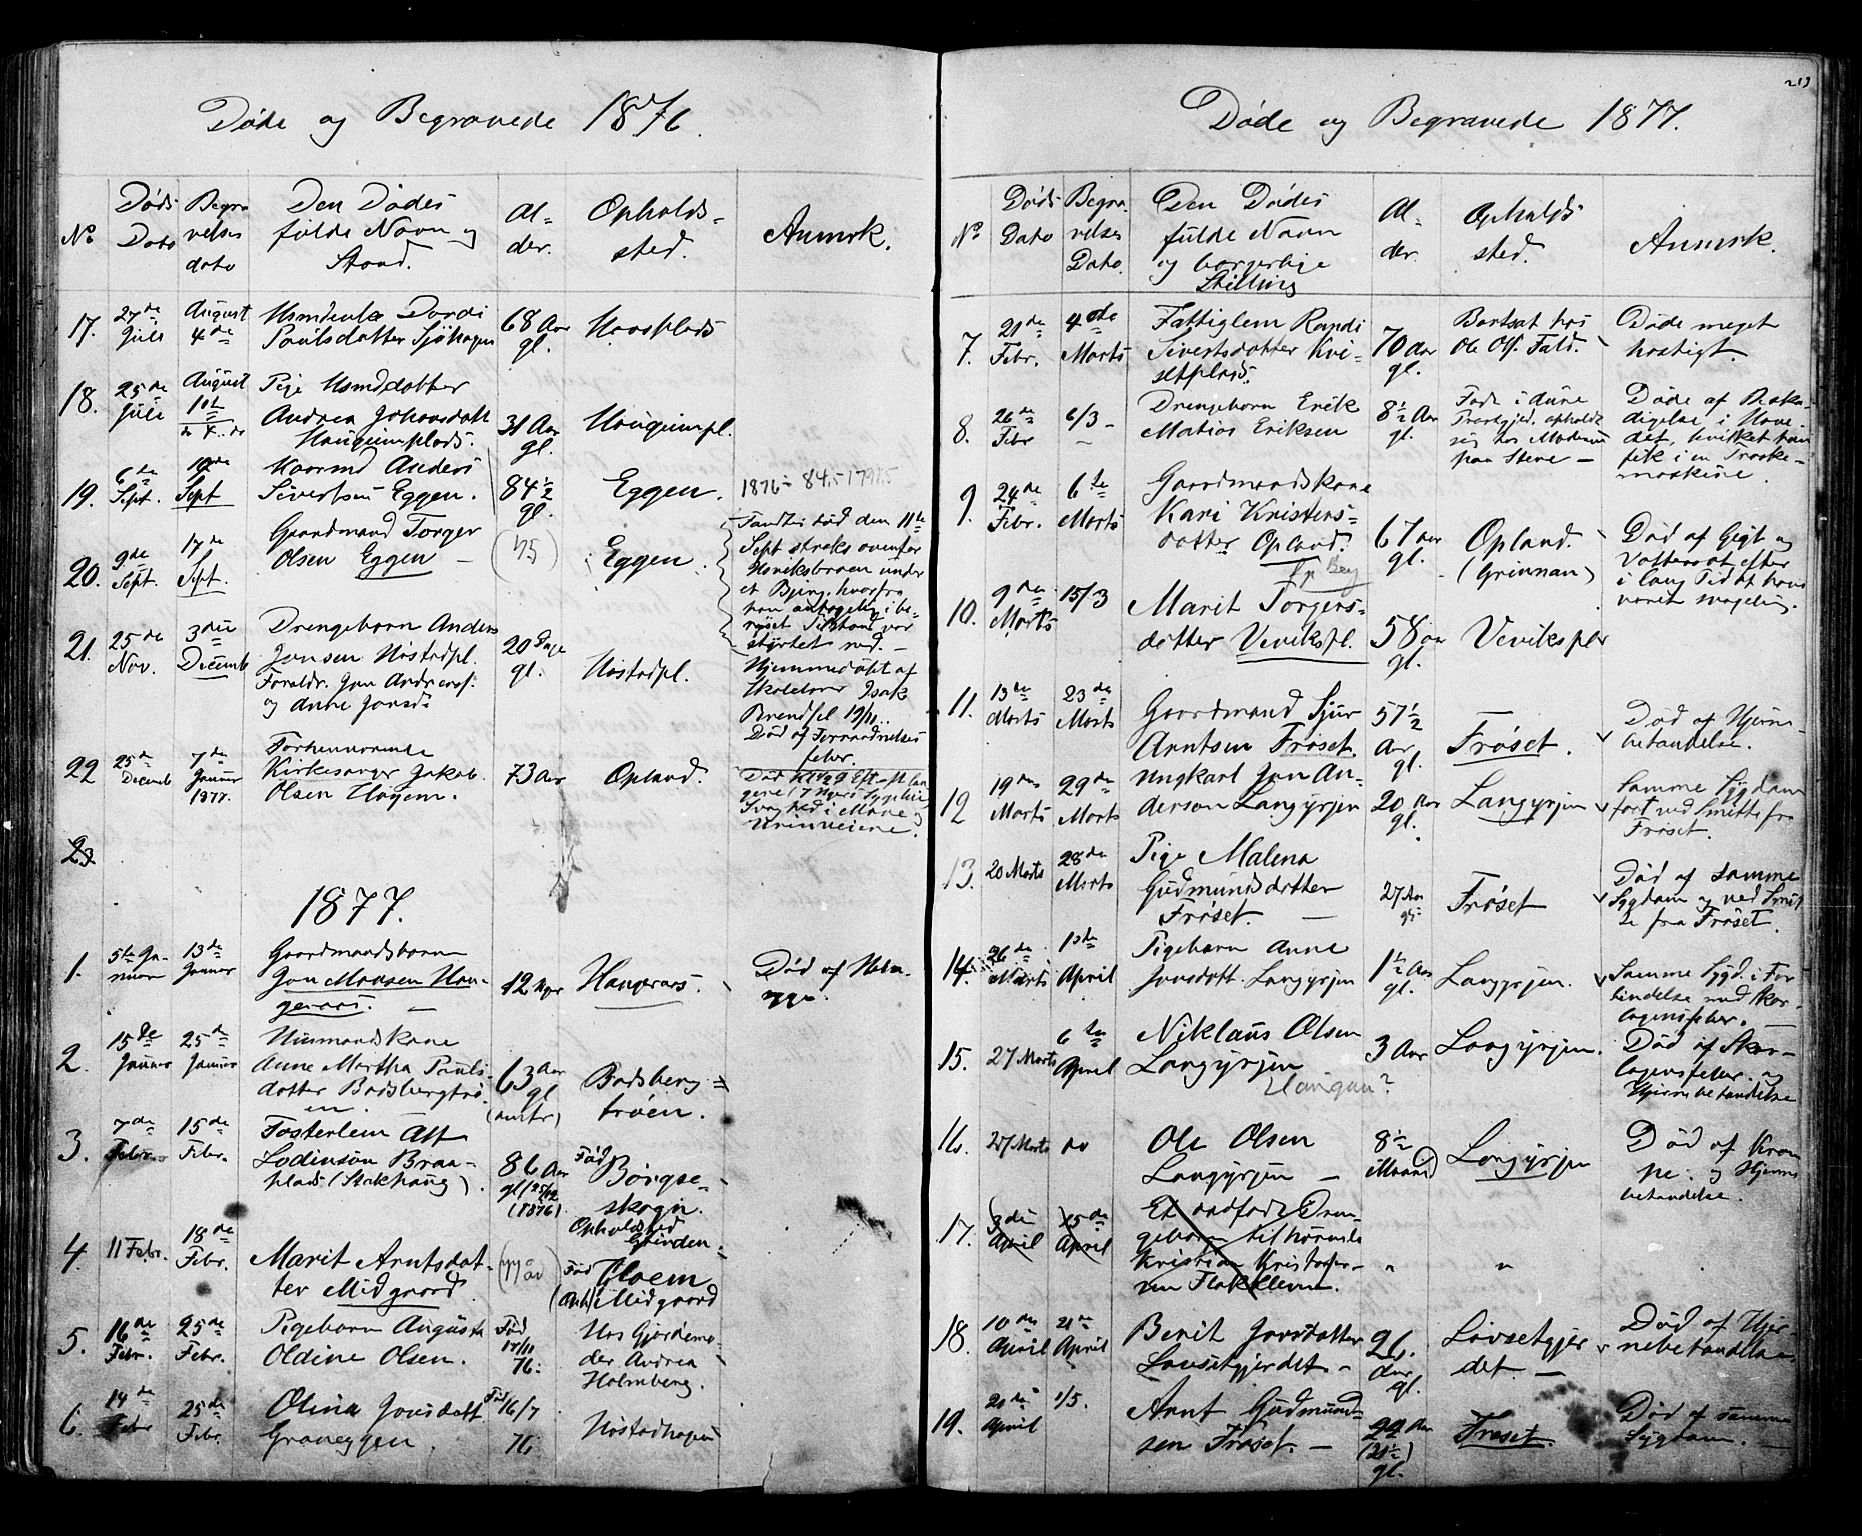 Døde og Begravede 1876.
No
Døds
Dato
Begra
velses
dato
Den Dødes
fulde Navn og
Stand.
Al-
der.
Opholds-
sted.
Anmrk.
17.
27de
Juli
August
4de
Husmdenke Dordi
Paulsdatter Sjøhagen
68 Aar
gl.
18.
25de
Juli
August
Pige Husmddotter
Andrea Johansdatt
Haugumplads.
31 Aar
gl.
Haugumpl.
19.
6te
Sept.
Sept
Kaarmd Anders
Sivertsen Eggen.
84½
gl.
Eggen.
20.
9de
Sept.
17de
Sept.
Gaardmand Torger
Olsen Eggen
(75)
Eggen.
Fandtes død den 11te
Sept straks ovenfor
under
et Bjerg, hvorfra
han antagelig i be-
ruset Tilstand var
styrtet ned. -
21.
25de
Nov.
3die
Decemb
Drengebarn Anders
Jonsen Hostadpl.
Foreldr. Jon Andersf.
og Anne Jonsd:
20 Dage
gl.
Hostadpl.
Hjemmedøbt af
Skolelærer Isak
Brendsel 19/11..
Død af Forraadnelses
feber.
22
25de
Decemb
7de
Januar
1877.
Forhenværende
Kirkesanger Jakob
Olsen Høyem.
73 Aar
Opland.
Urinveiene.
23
1877.
1.
5te Ja-
nuar
13de
Januar
Gaardmandsbarn
Jon Monsen Hau-
geraas. -
12 Uger
Haugeraas.
2.
15de
Januar
25de
Januar
Husmandskone
Anne Martha Pauls-
datter Badsbergtrø-
en.
63 aar
gl
(omtr)
Badsberg=
trøen.
3.
7de
Febr.
15de
Febr.
Fosterlem Ait
Lodinsøn Braa-
plads (Stokhaug).
86 Aar
gl (25/12
(1876)
Fød
Børgse-
skogn.
Opholdssted
Grinden
4.
11 Febr.
18de
Febr.
Marit Arntsdat-
ter Midgaard.
(77 år)
Fød Gloem
(Oph) Midgaard
5.
16de
Febr.
25de
Febr.
Pigebarn Augusta
Oldine Olsen.
Fød
17/11
76.
Hos Gjordemo-
der Andrea
Holmberg.
6.
14de
Febr
25de
Febr.
Olina Jonsdatt
Graneggen.
Fød 16/7
76
Hostadhagen
213
Døde og Begravede 1877.
No
Døds
Dato
Begra-
velses
Dato.
Den Dødes
fulde Navn
og borgerlige
Stilling
Al-
der.
Opholds
sted.
Anmrk.
7.
21de
Febr.
4de
Marts
Fattiglem Randi
Sivertsdatter Kvi-
setplads.
70 aar
gl.
Bortsat hos
Ole Olf. Fald.
Døde meget
hastigt.
8.
26de
Febr
6/3 -
Drengebarn Erik
Matias Eriksen
8½ Aar
gl.
sig hos Moderen
paa Stene -
Døde af Beska-
digelse i Hove-
det, hvilket han
fik i en Træske-
maskine.
9.
24de
Febr.
6te
Marts
Gaardmandskone
Kari Kristens-
datter Opland.
67 aar
gl.
Opland.
(Grinnan)
Død af Gigt og
Vattersot efter
i lang Tid at have
været svagelig.
10.
9de
Marts
15/3
Marit Torgers-
datter Vevikspl.
58 aar
gl.
Vevikspl
11.
13de
Marts
23de
Marts
Gaardmand Sjur
Arntsen Frøset.
57½
Aar
gl.
Frøset.
Død af Hjerne
betændelse.
12
19de
Marts
29de
Marts
Ungkarl Jon An-
derson Langørjen
20 Aar
gl.
Langørjen
Samme Sygdom
ført ved Smitte fra
Frøset.
13.
20 Marts
28de
Marts
Pige Malena
Gudmundsdatter
Frøset. -
27 Aar
gl.
Frøset
Død af samme
Sygdom og ved Smit
te fra Frøset.
14.
26de
Marts
1ste
April
Pigebarn Anne
Jonsdatt. Langørjen
1½ Aar
gl.
Langørjen.
Samme Sygd. i For
bindelse med Skar-
lagensfeber. -
15.
27 Marts
6te
April
Niklaus Olsen
Langørjen
Haugan?
3 Aar
Langørjen.
Død af Skar-
lagensfeber og
Hjernebetændelse
16.
27 Marts
do
Ole Olsen
Langørjen -
8½
Maaned
Langørjen
Død af Kram
pe. og Hjerne
betændelse.
17.
3die
April
15de
April
Et dødfødt Dren-
gebarn tilhørende
Kristian Kristofer-
sen Flakklevin.
"
"
18.
10de
April
21de
April
Berit Jonsdatter
Løvsetgjerdet -
26.
Aar
gl.
Løvsetgjer
det. -
Død af Hjer-
nebetændelse
19.
21de
April
1/5.
Arnt Gudmund-
sen Frøset. -
22 Aar
(21½)
gl.
Frøset.
Død af samme
Sygdom. -